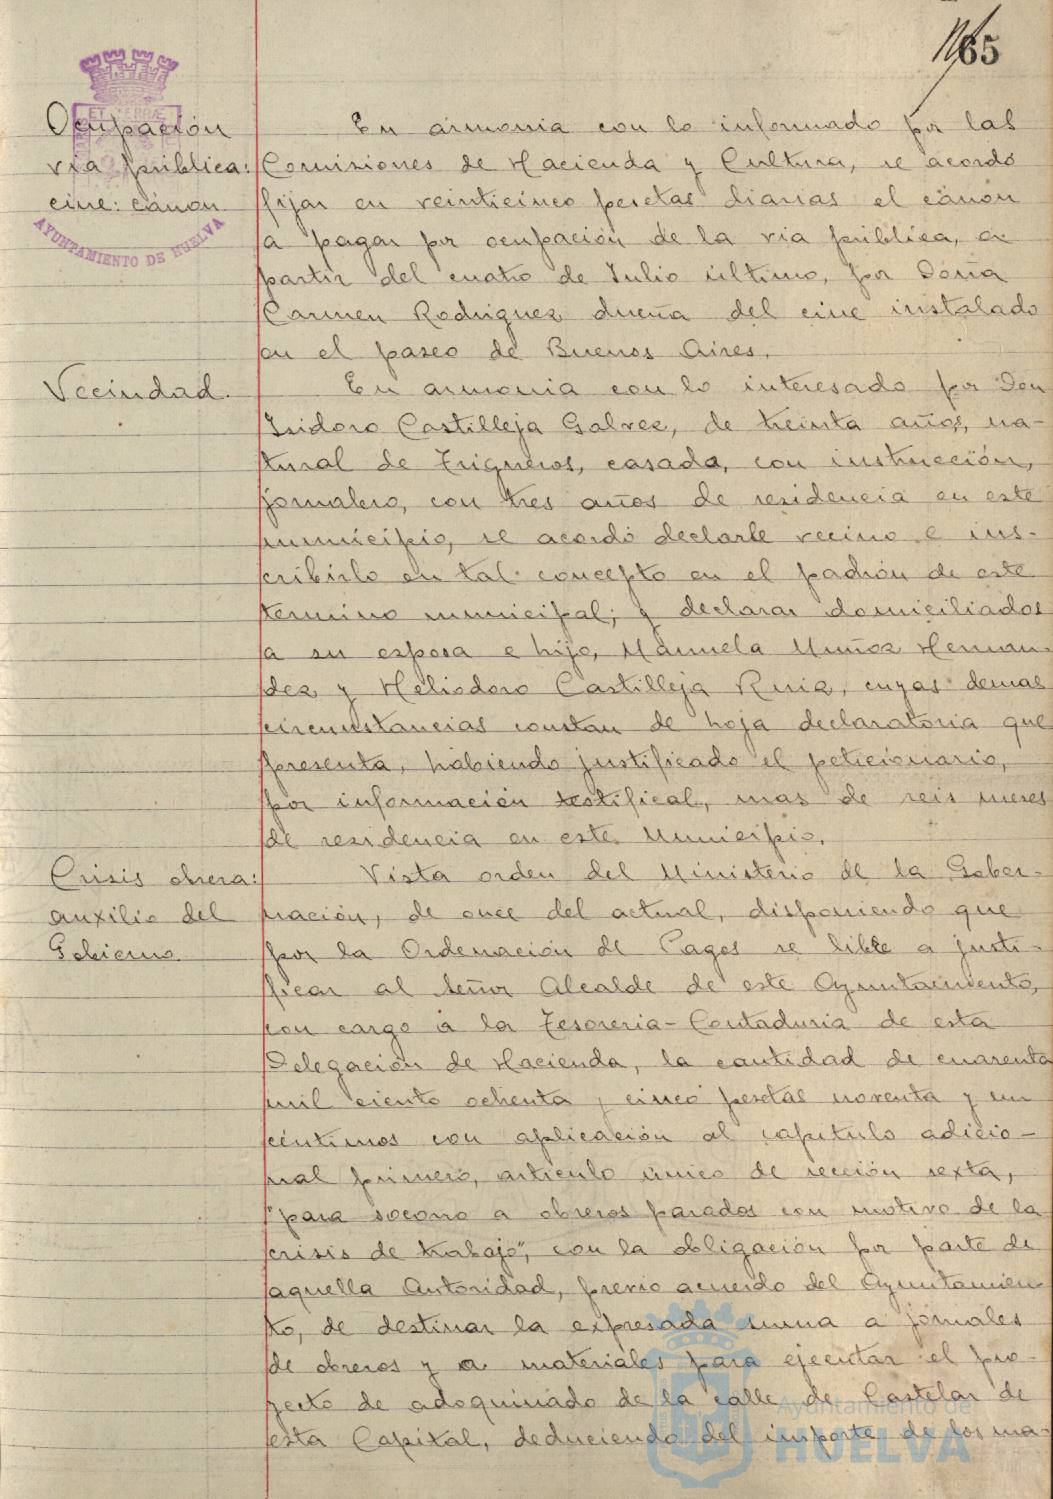 65
Ocupación
vía pública:
cine: cánon
ET TERRÆ
AYUNTAMIENTO DE HUELVA
En armonia con lo informado por las
Comisiones de Hacienda y Cultura, se acordó
fijar en veinticinco pesetas diarias el cánon
a pagar por ocupación de la via pública, a
partir del cuatro de Julio último, por Doña
Carmen Rodriguez dueña del cine instalado
en el paseo de Buenos Aires.
Vecindad.
En armonia con lo interesado por Don
Isidoro Castilleja Galvez, de treinta años, na-
tural de Trigueros, casada, con instrucción,
jornalero, con tres años de residencia en este
municipio, se acordó declarle vecino e ins-
cribirlo en tal concepto en el padrón de este
termino municipal; y declarar domiciliados
a su esposa e hijo, Manuela Muñoz Hernan-
dez y Heliodoro Castilleja Ruiz, cuyas demas
circunstancias constan de hoja declaratoria que
presenta, habiendo justificado el peticionario,
por información testifical, mas de seis meses
de residencia en este Municipio.
Crisis obrera:
auxilio del
Gobierno
Vista orden del Ministerio de la Gober-
nación, de once del actual, disponiendo que
por la Ordenación de Pagos se libre a justi-
ficar al Señor Alcalde de este Ayuntamiento,
con cargo a la Tesoreria-Contaduria de esta
Delegación de Hacienda, la cantidad de cuarenta
mil ciento ochenta y cinco pesetas noventa y un
céntimos con aplicación al capitulo adicio-
nal primero, articulo único de sección sexta,
"para socorro a obreros parados con motivo de la
crisis de trabajo", con la obligación por parte de
aquella Autoridad, previo acuerdo del Ayuntamien-
to, de destinar la expresada suma a jornales
de obreros y a materiales para ejecutar el pro-
yecto de adoquinado de la calle de Castelar de
esta Capital, deduciendo del importe de los ma-
Ayuntamiento de
HUELVA